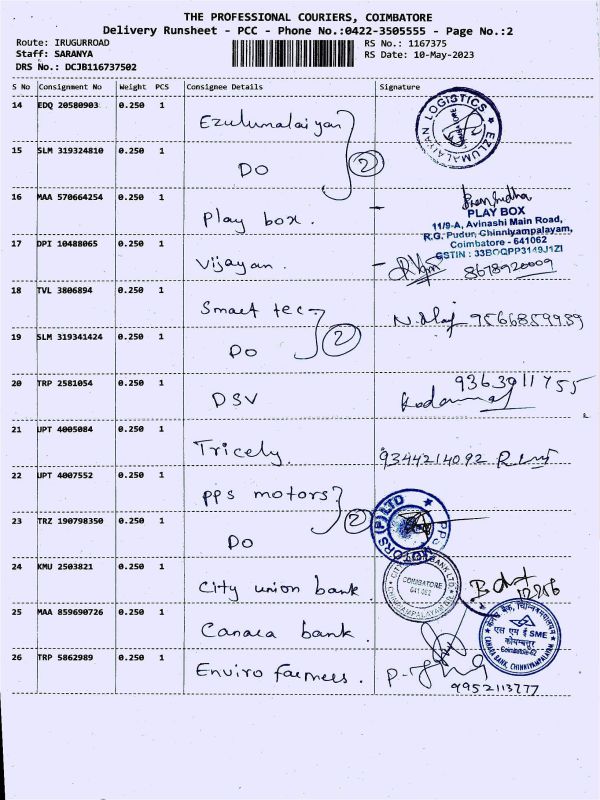 THE PROFESSIONAL COURIERS, COIMBATORE
Delivery Runsheet - PCC - Phone No.:0422-3505555 - Page No.:2
Route: IRUGURROAD
Staff: SARANYA
DRS No.: DCJB116737502
RS No.: 1167375
RS Date: 10-May-2023
S No Consignment No Weight PCS Consignee Details Signature
14 EDQ 20580903 0.250 1 Ezulumalaiyan
EZLUMALAIYAN LOGISTICS
15 SLM 319324810 0.250 1 DO 2
16 MAA 570664254 0.250 1 Play box.
PLAY BOX
11/9-A, Avinashi Main Road,
R.G. Pudur, Chinniyampalayam,
Coimbatore - 641062
GSTIN : 33BOQPP3149J1ZI
17 DPI 10488065 0.250 1 Vijayan. 8678920009
18 TVL 3806894 0.250 1 Smart tec 9566859939
19 SLM 319341424 0.250 1 DO 2
20 TRP 2581054 0.250 1 DSV 9363911755
21 UPT 4005084 0.250 1 Tricely. 9344214092
22 UPT 4007552 0.250 1 PPS motors
PPS MOTORS (P) LTD
23 TRZ 190798350 0.250 1 DO 2
24 KMU 2503821 0.250 1 City union bank.
COIMBATORE
641 062
25 MAA 859690726 0.250 1 Canara bank.
एस एम ई SME
कोयम्बत्तूर
Coimbatore-62
CANARA BANK, CHINNIYAMPALAYAM
26 TRP 5862989 0.250 1 Enviro farmers. 9952113777